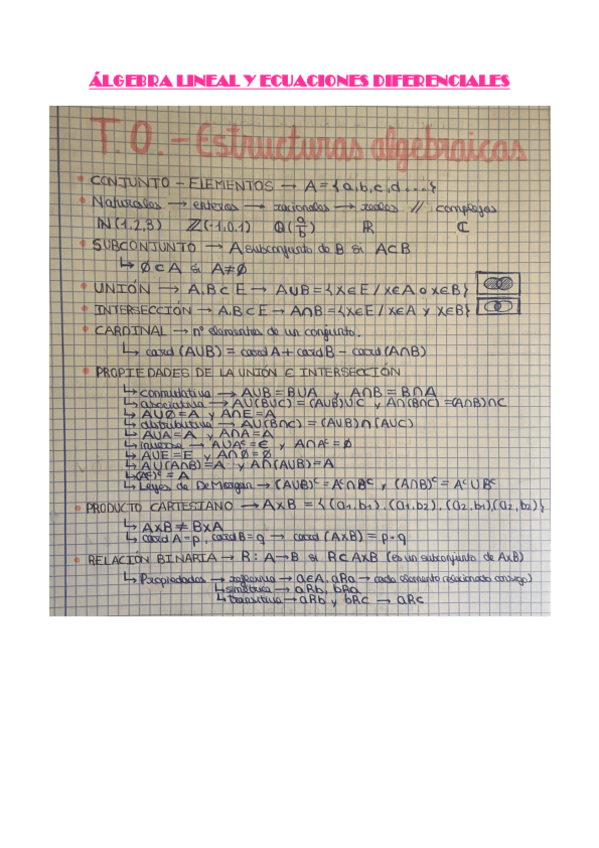 ÁLGEBRA LINEAL Y ECUACIONES DIFERENCIALES
T.0.- Estructuras algebraicas
• CONJUNTO - ELEMENTOS → A = {a,b,c,d...}
• Naturales → enteros → racionales → reales // complejos
ℕ(1,2,3) ℤ(-1,0,1) ℚ(a/b) ℝ ℂ
• SUBCONJUNTO → A subconjunto de B si A⊂B
↳ Ø⊂A si A≠Ø
• UNIÓN → A,B⊂E → A∪B = {x∈E / x∈A o x∈B}
• INTERSECCIÓN → A,B⊂E → A∩B = {x∈E / x∈A y x∈B}
• CARDINAL → nº elementos de un conjunto.
↳ card (A∪B) = card A + card B - card (A∩B)
• PROPIEDADES DE LA UNIÓN E INTERSECCIÓN
↳ conmutativa → A∪B = B∪A y A∩B = B∩A
↳ asociativa → A∪(B∪C) = (A∪B)∪C y A∩(B∩C) = (A∩B)∩C
↳ A∪Ø = A y A∩E = A
↳ distributiva → A∪(B∩C) = (A∪B)∩(A∪C)
↳ A∪A = A y A∩A = A
↳ inversa → A∪Aᶜ = E y A∩Aᶜ = Ø
↳ A∪E = E y A∩Ø = Ø
↳ A∪(A∩B) = A y A∩(A∪B) = A
↳ (Aᶜ)ᶜ = A
↳ Leyes de De Morgan → (A∪B)ᶜ = Aᶜ∩Bᶜ y (A∩B)ᶜ = Aᶜ∪Bᶜ
• PRODUCTO CARTESIANO → A×B = {(a₁,b₁),(a₁,b₂),(a₂,b₁),(a₂,b₂)}
↳ A×B ≠ B×A
↳ card A = p, card B = q → card (A×B) = p·q
• RELACIÓN BINARIA → R: A→B si R⊂A×B (es un subconjunto de A×B)
↳ Propiedades → reflexiva → a∈A, aRa → cada elemento relacionado consigo)
↳ simétrica → aRb, bRa
↳ transitiva → aRb y bRc → aRc